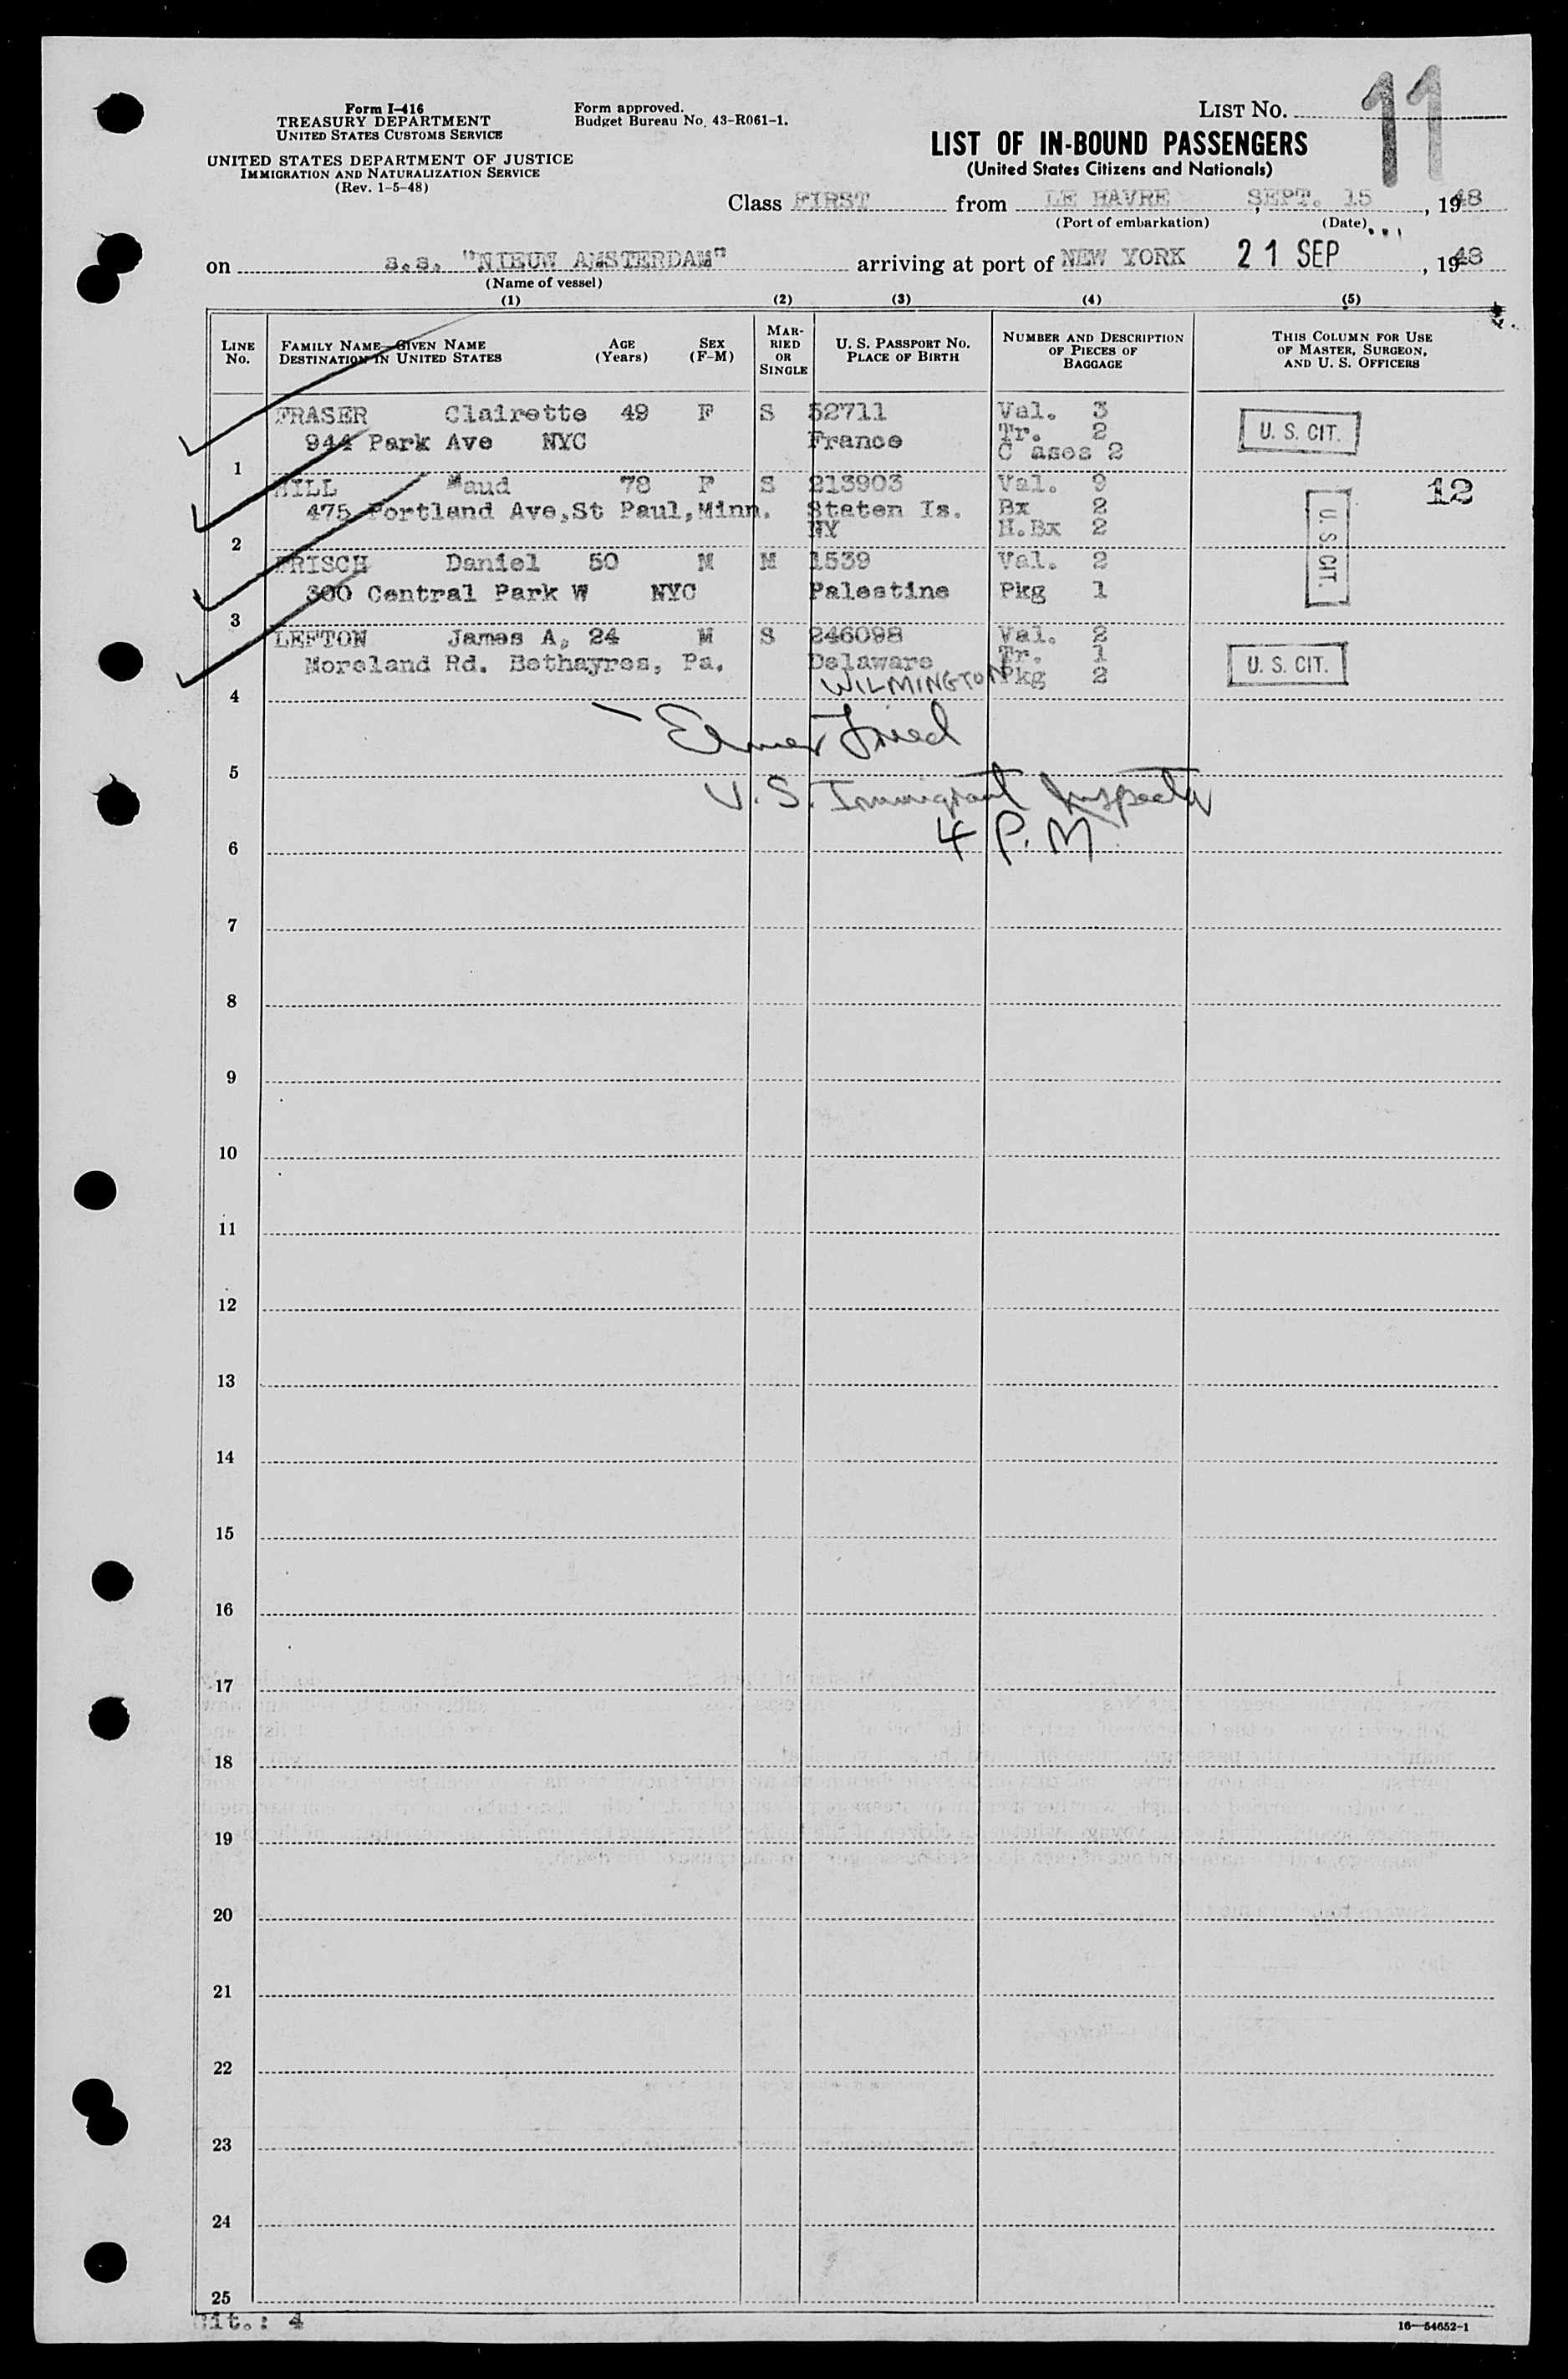 Form I-416
TREASURY DEPARTMENT
UNITED STATES CUSTOMS SERVICE
UNITED STATES DEPARTMENT OF JUSTICE
IMMIGRATION AND NATURALIZATION SERVICE
(Rev. 1-5-48)
Form approved.
Budget Bureau No. 43-R061-1.
LIST No. 11
LIST OF IN-BOUND PASSENGERS
(United States Citizens and Nationals)
Class FIRST from LE HAVRE, SEPT. 15, 1948
(Port of embarkation) (Date)
on s.s. "NIEUW AMSTERDAM" arriving at port of NEW YORK 21 SEP, 1948
(Name of vessel)
(1) (2) (3) (4) (5)
LINE No. FAMILY NAME—GIVEN NAME DESTINATION IN UNITED STATES AGE (Years) SEX (F-M) MARRIED OR SINGLE U. S. PASSPORT No. PLACE OF BIRTH NUMBER AND DESCRIPTION OF PIECES OF BAGGAGE THIS COLUMN FOR USE OF MASTER, SURGEON, AND U. S. OFFICERS
FRASER Clairette 49 F S 52711 Val. 3
944 Park Ave NYC France Tr. 2 U. S. CIT.
1 C ases 2
HILL Maud 78 F S 213903 Val. 9 12
475 Portland Ave,St Paul,Minn. Staten Is. Bx 2
2 NY H.Bx 2 U. S. CIT.
FRISCH Daniel 50 M M 1539 Val. 2
300 Central Park W NYC Palestine Pkg 1
3
LEFTON James A, 24 M S 246098 Val. 2
Moreland Rd. Bethayres, Pa. Delaware Tr. 1 U. S. CIT.
4 WILMINGTON Pkg 2
Elmer Fried
5
U. S. Immigrant Inspector
6 4 P.M.
7
8
9
10
11
12
13
14
15
16
17
18
19
20
21
22
23
24
25
Cit.: 4
16—54652-1